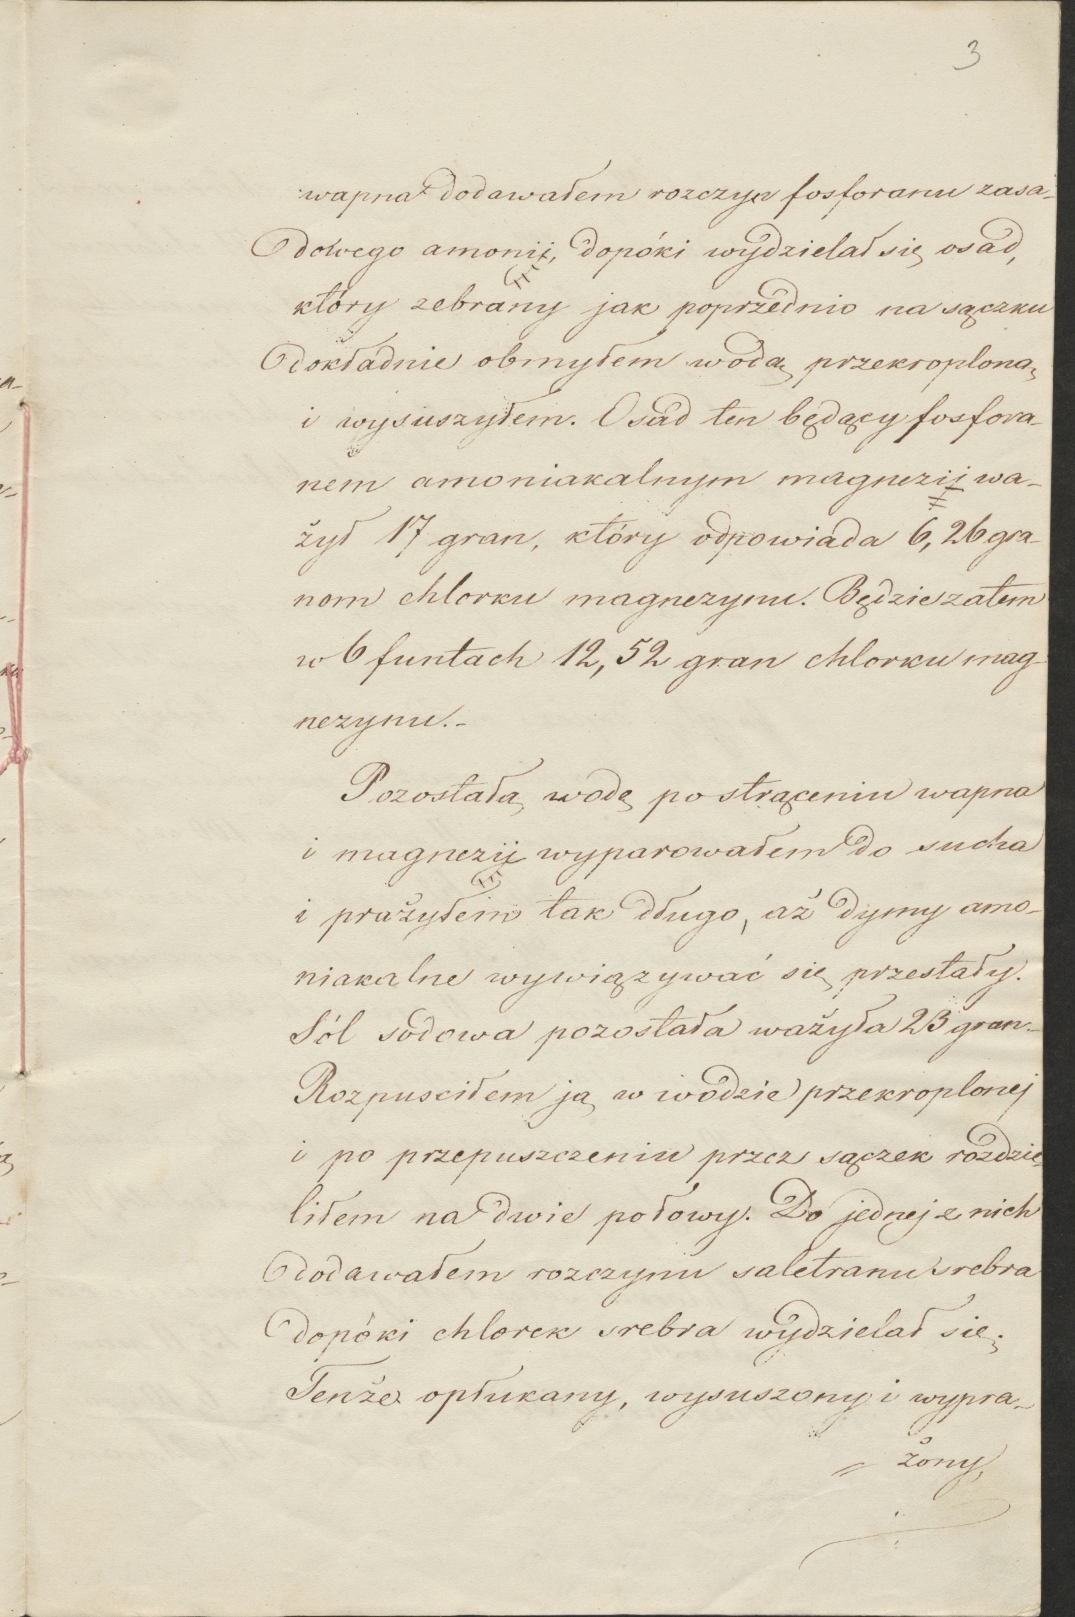 3
wapna dodawałem rozczyn fosforanu zasa-
dowego amonii, dopóki wydzielał się osad,
który zebrany jak poprzednio na sączku
dokładnie obmyłem wodą przekroploną
i wysuszyłem. Osad ten będący fosfora-
nem amoniakalnym magnezij wa-
żył 17 gran, który odpowiada 6,26 gra-
nom chlorku magnezynu. Będzie zatem
w 6 funtach 12,52 gran chlorku mag-
nezynu.-
Pozostałą wodę po strąceniu wapna
i magnezij wyparowałem do sucha
i prażyłem tak długo, aż dymy amo-
niakalne wywiązywać się przestały.
Sól sodowa pozostała ważyła 23 gran.
Rozpusciłem ją w wodzie przekroplonej
i po przepuszczeniu przez sączek rozdzie
liłem na dwie połowy. Do jednej z nich
dodawałem rozczynu saletranu srebra
dopóki chlorek srebra wydzielał się.
Tenże opłukany, wysuszony i wypra-
żony,